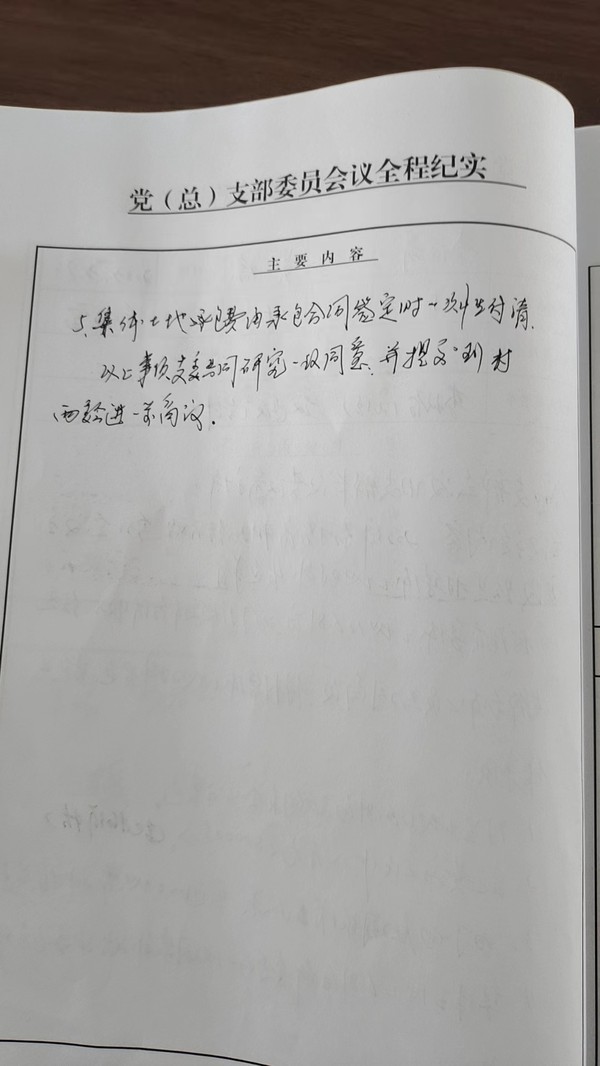 党（总）支部委员会议全程纪实
主要内容
5、集体土地承包费由承包合同鉴定时一次性付清、
以上事项支委共同研究一致同意、并提交到村
两委进一步商议.